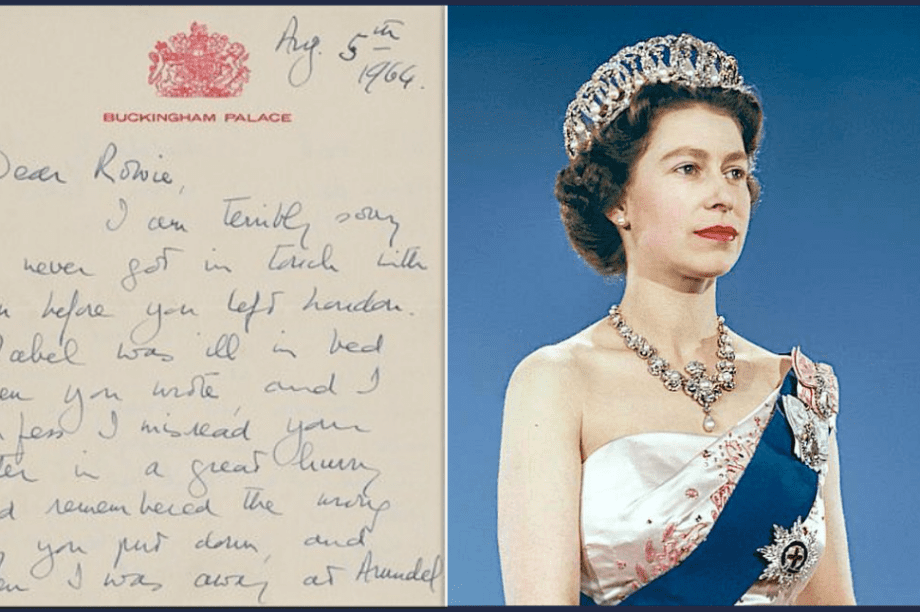 Aug. 5th
1964.
BUCKINGHAM PALACE
Dear Rowie,
I am terribly sorry
never got in touch with
u before you left London.
abel was ill in bed
en you wrote, and I
fess I misread your
ter in a great hurry
d remembered the wrong
you put down, and
en I was away at Arundel